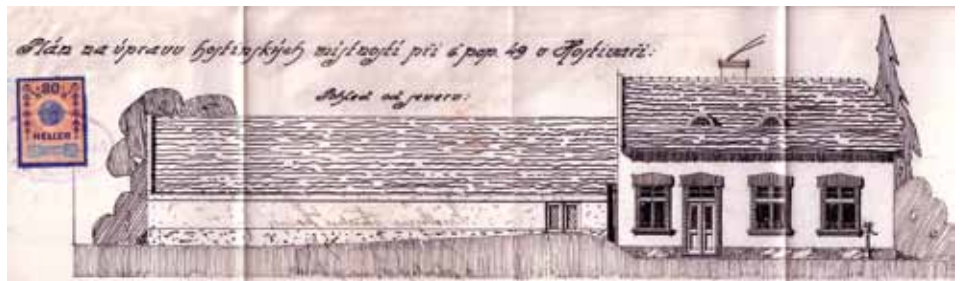 Plán na úpravu hostinských místností při č. pop. 49 v Hostivaři:
Pohled od severu:
80
HELLER